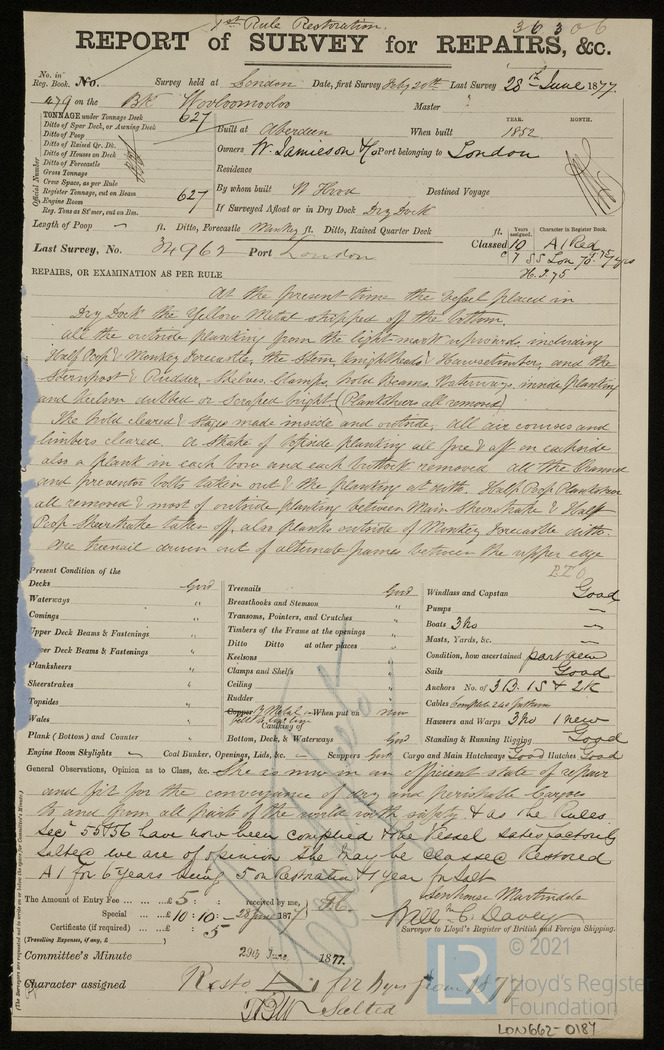 1st Rule Restoration.
36306
REPORT of SURVEY for REPAIRS, &c.
No. in Reg. Book. No. Survey held at London Date, first Survey Feby 20th Last Survey 28th June 1877.
479 on the BK Woolloomooloo Master
TONNAGE under Tonnage Deck 627
Ditto of Spar Deck, or Awning Deck
Ditto of Poop
Ditto of Raised Qr. Dk.
Ditto of Houses on Deck
Ditto of Forecastle
Gross Tonnage
Crew Space, as per Rule
Register Tonnage, cut on Beam 627
Engine Room
Reg. Tons as St'mer, cut on Bm.
Official Number
Built at Aberdeen When built YEAR. 1852 MONTH.
Owners W. Jamieson & Co Port belonging to London
Residence
By whom built W Hood Destined Voyage
If Surveyed Afloat or in Dry Dock Dry Dock
Length of Poop ft. Ditto, Forecastle Monkey ft. Ditto, Raised Quarter Deck ft.
Last Survey, No. 34962 Port London
Years assigned. Character in Register Book.
Classed 10 A1 Red
REPAIRS, OR EXAMINATION AS PER RULE
At the present time the vessel placed in
Dry Dock the Yellow Metal stripped off the bottom,
all the outside planking from the light mark upwards, including
Half Poop & Monkey Forecastle, the Stem, Knightheads & Hawsetimber, and the
Sternpost & Rudder, Shelves, Clamps, hold Beams, Waterways, inside planking
and keelson dubbed or scraped bright (Plankshears all removed)
The hold cleared & stages made inside and outside, all air courses and
limbers cleared. A strake of topside planking all fore & aft on each side
also a plank in each bow and each buttock removed all the
and preventor bolts taken out & the planking at ditto. Half Poop Planksheer
all removed & most of outside planking between Main Sheerstrake & Half
Poop Sheerstrake taken off, also planks outside of Monkey Forecastle ditto.
One treenail driven out of alternate frames between the upper edge
P.T.O
Present Condition of the
Decks Good
Waterways "
Comings "
Upper Deck Beams & Fastenings "
er Deck Beams & Fastenings "
Planksheers "
Sheerstrakes "
Topsides "
Wales "
Plank (Bottom) and Counter "
Engine Room Skylights –
Treenails Good
Breasthooks and Stemson "
Transoms, Pointers, and Crutches "
Timbers of the Frame at the openings "
Ditto Ditto at other places "
Keelsons "
Clamps and Shelfs "
Ceiling "
Rudder "
Copper Y. Metal When put on new
Caulking of
Bottom, Deck, & Waterways Good
Coal Bunker, Openings, Lids, &c. – Scuppers Good
Windlass and Capstan Good
Pumps "
Boats 3 No "
Masts, Yards, &c. "
Condition, how ascertained part new
Sails Good
Anchors No. of 3 B. 1 S & 2 K
Cables Complete 240 fathoms
Hawsers and Warps 3 No 1 new
Standing & Running Rigging Good
Cargo and Main Hatchways Good Hatches Good
General Observations, Opinion as to Class, &c. She is now in an efficient state of repair
and fit for the conveyance of dry and perishable Cargoes
to and from all parts of the world with safety & as the Rules
Secn 55 & 56 have now been complied & the Vessel satisfactorily
Salted we are of opinion she may be classed Restored
A1 for 6 years being 5 on Restoration & 1 year for Salt
The Amount of Entry Fee £ 5 : : received by me,
Special £ 10 : 10 : 28 June 1877
Certificate (if required) : 5
(Travelling Expenses, if any, £ )
Senhouse Martindale
Willm C. Davey
Surveyor to Lloyd's Register of British and Foreign Shipping.
Committee's Minute 29th June 1877.
Character assigned Resto A1 for years from 1877
Salted
(The Surveyors are requested not to write on or below the space for Committee's Minute.)
© 2021
LR Lloyd's Register Foundation
LON662-0187